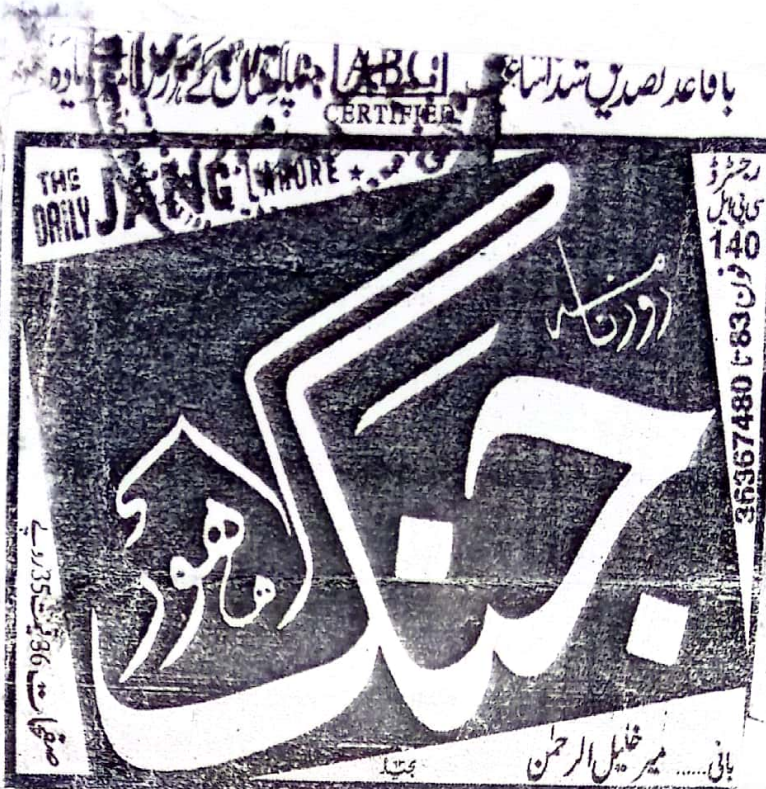 باقاعدہ تصدیق شدہ اشاعت
ABC
CERTIFIED
پاکستان کے
THE DAILY JANG LAHORE ★
رجسٹرڈ
سی پی ایل
140
فون 83 تا 36367480
روزنامہ
جنگ
لاہور
صفحات 36 قیمت 35 روپے
بانی...... میر خلیل الرحمٰن